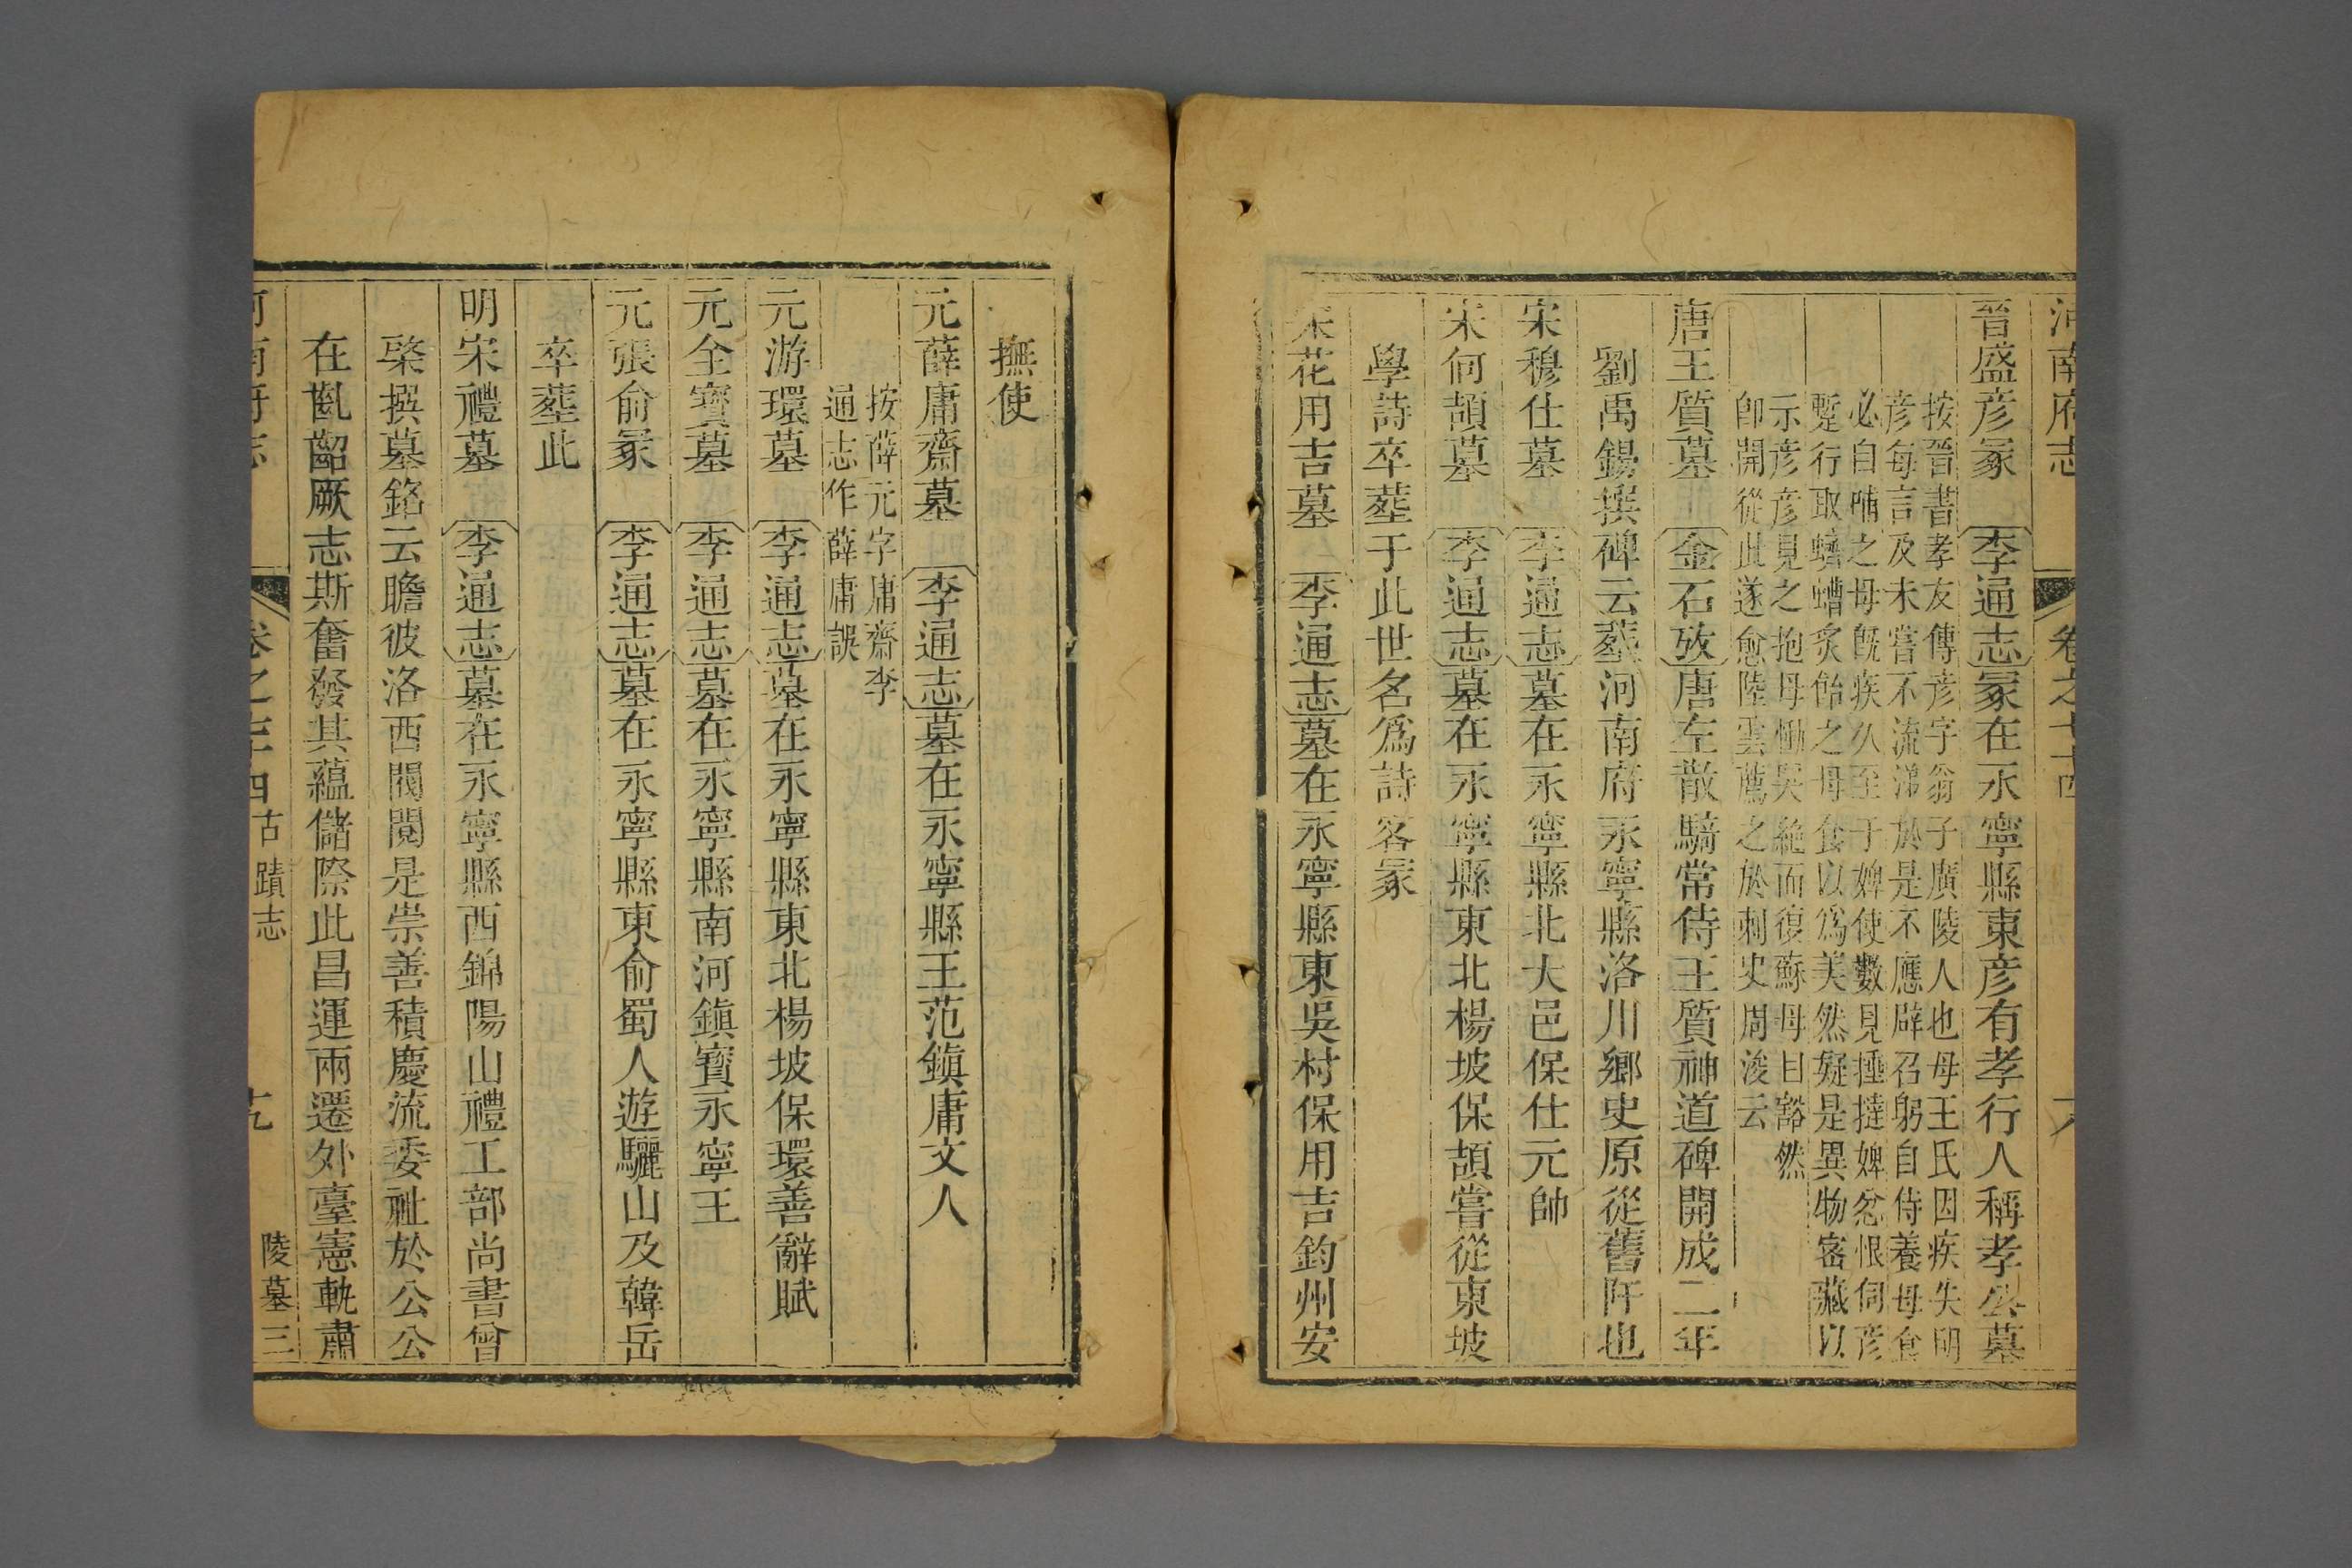 河南府志 卷之七十四
晉盛彦冢 李通志冢在永寧縣東彦有孝行人稱孝公墓
按晉書孝友傳彦字翁子廣陵人也母王氏因疾失明
彦每言及未嘗不流涕於是不應辟召躬自侍養母食
必自哺之母旣疾久至于婢使數見捶撻婢忿恨伺彦
蹔行取蠐螬炙飴之母食以爲美然疑是異物密藏以
示彦彦見之抱母慟哭絶而復蘇母目豁然
卽開從此遂愈陸雲薦之於刺史周浚云
唐王質墓 金石攷唐左散騎常侍王質神道碑開成二年
劉禹錫撰碑云葬河南府永寧縣洛川鄉史原從舊阡也
宋穆仕墓 李通志墓在永寧縣北大邑保仕元帥
宋何頡墓 李通志墓在永寧縣東北楊坡保頡嘗從東坡
學詩卒葬于此世名爲詩客冢
宋花用吉墓 李通志墓在永寧縣東吳村保用吉鈞州安
撫使
元薛庸齋墓 李通志墓在永寧縣王范鎭庸文人
按薛元字庸齋李
通志作薛庸誤
元游環墓 李通志墓在永寧縣東北楊坡保環善辭賦
元全寳墓 李通志墓在永寧縣南河鎭寳永寧王
元張俞冢 李通志墓在永寧縣東俞蜀人遊驪山及韓岳
卒葬此
明宋禮墓 李通志墓在永寧縣西錦陽山禮工部尚書曾
棨撰墓銘云瞻彼洛西閥閱是崇善積慶流委祉於公公
在齓齠厥志斯奮發其蘊儲際此昌運兩遷外臺憲軌肅
河南府志 卷之七十四 古蹟志 十九 陵墓三